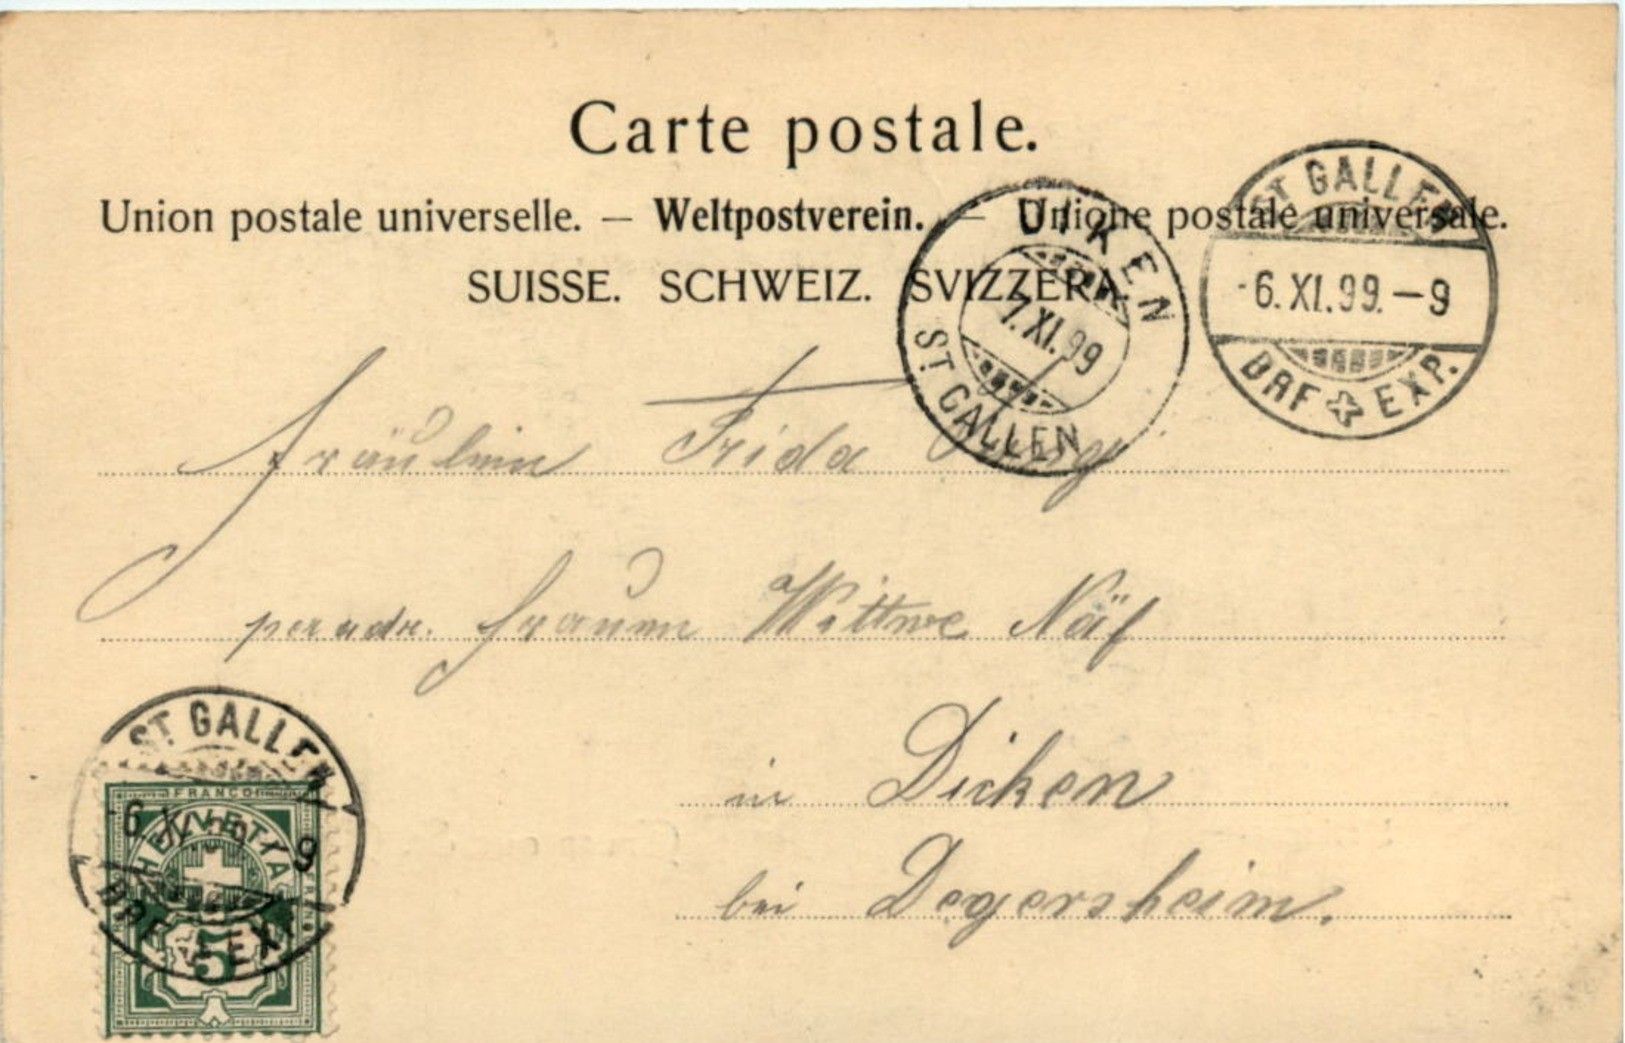 Carte postale.
Union postale universelle. — Weltpostverein. — Unione postale universale.
SUISSE. SCHWEIZ. SVIZZERA.
ST. GALLEN
-6.XI.99.-9
BRF EXP.
DIKEN
7.XI.99
ST. GALLEN
Fräulein Frida
per adr. Frauen Wittwe Näf
in Dicken
bei Degersheim.
ST. GALLEN
6.XI.99 9
BRF EXP.
FRANCO
HELVETIA
FRANCO
5